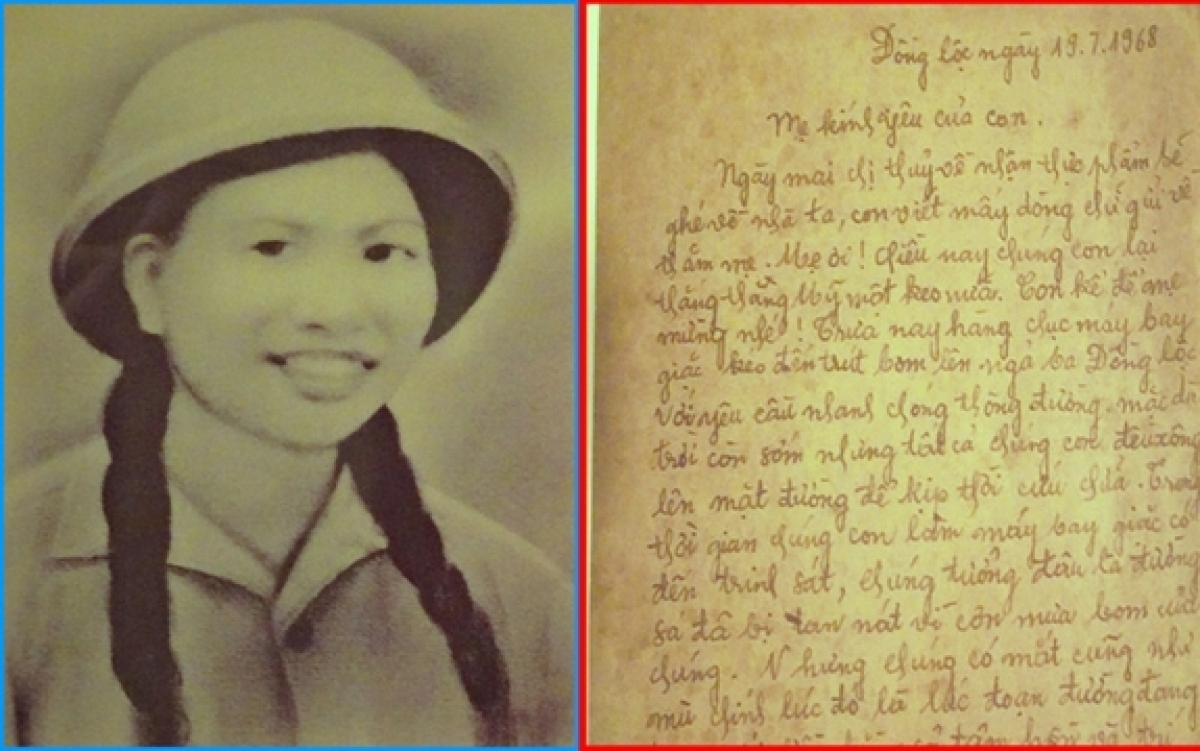 Đồng lộc ngày 19.7.1968
Mẹ kính yêu của con.
Ngày mai chị thuỷ về nhận thực phẩm sẽ
ghé về nhà ta, con viết mấy dòng chữ gửi về
thăm mẹ. Mẹ ơi! Chiều nay chúng con lại
thắng thằng Mỹ một keo nữa. Con kể để mẹ
mừng nhé! Trưa nay hàng chục máy bay
giặc kéo đến trút bom lên ngả ba Đồng lộc
Với yêu cầu nhanh chóng thông đường, mặc dù
trời còn sớm nhưng tất cả chúng con đều xông
lên mặt đường để kịp thời cứu chữa. Trong
thời gian chúng con làm máy bay giặc có
đến trinh sát, chúng tưởng đâu là đường
sá đã bị tan nát vì cơn mưa bom của
chúng. Nhưng chúng có mắt cũng như
mù chính lúc đó là lúc đoạn đường đang